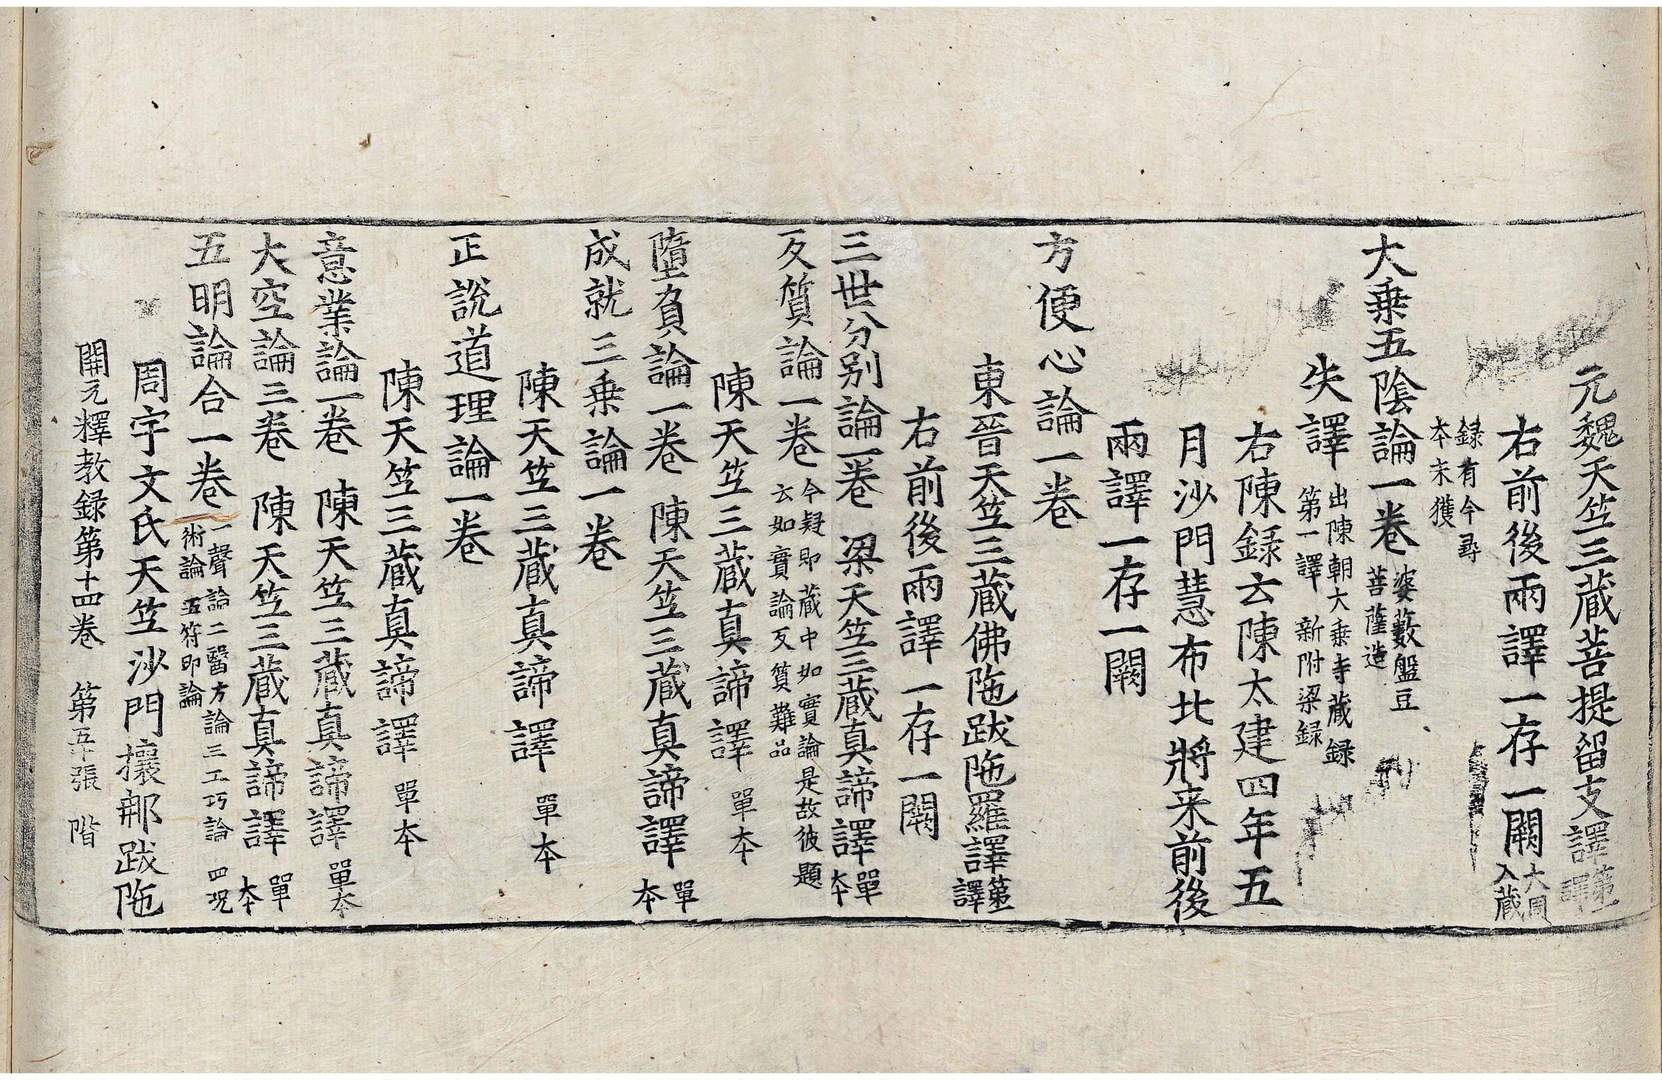 元魏天竺三蔵菩提留支譯第一譯
右前後兩譯一存一闕大周入蔵
録有今尋
本未獲
大乗五陰論一巻婆藪盤豆菩薩造
失譯出陳朝大乗寺蔵録第一譯新附梁録
右陳録云陳太建四年五
月沙門慧布北將来前後
兩譯一存一闕
方便心論一巻
東晉天竺三蔵佛陁跋陁羅譯第一譯
右前後兩譯一存一闕
三世分别論一巻梁天竺三蔵真諦譯單本
反質論一巻今疑即蔵中如實論是故彼題云如實論反質難品
陳天竺三蔵真諦譯單本
墮負論一巻陳天竺三蔵真諦譯單本
成就三乗論一巻
陳天竺三蔵真諦譯單本
正說道理論一巻
陳天竺三蔵真諦譯單本
意業論一巻陳天竺三蔵真諦譯單本
大空論三巻陳天竺三蔵真諦譯單本
五明論合一巻一聲論二醫方論三工巧論四呪術論五符印論
周宇文氏天竺沙門攘郍跋陁
開元釋教録第十四巻 第五十張 階